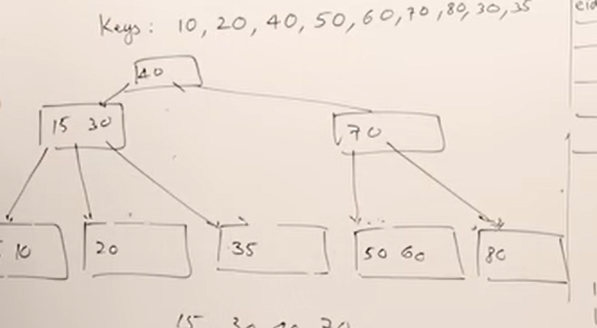 Keys: 10, 20, 40, 50, 60, 70, 80, 30, 35
40
15 30
70
10
20
35
50 60
80